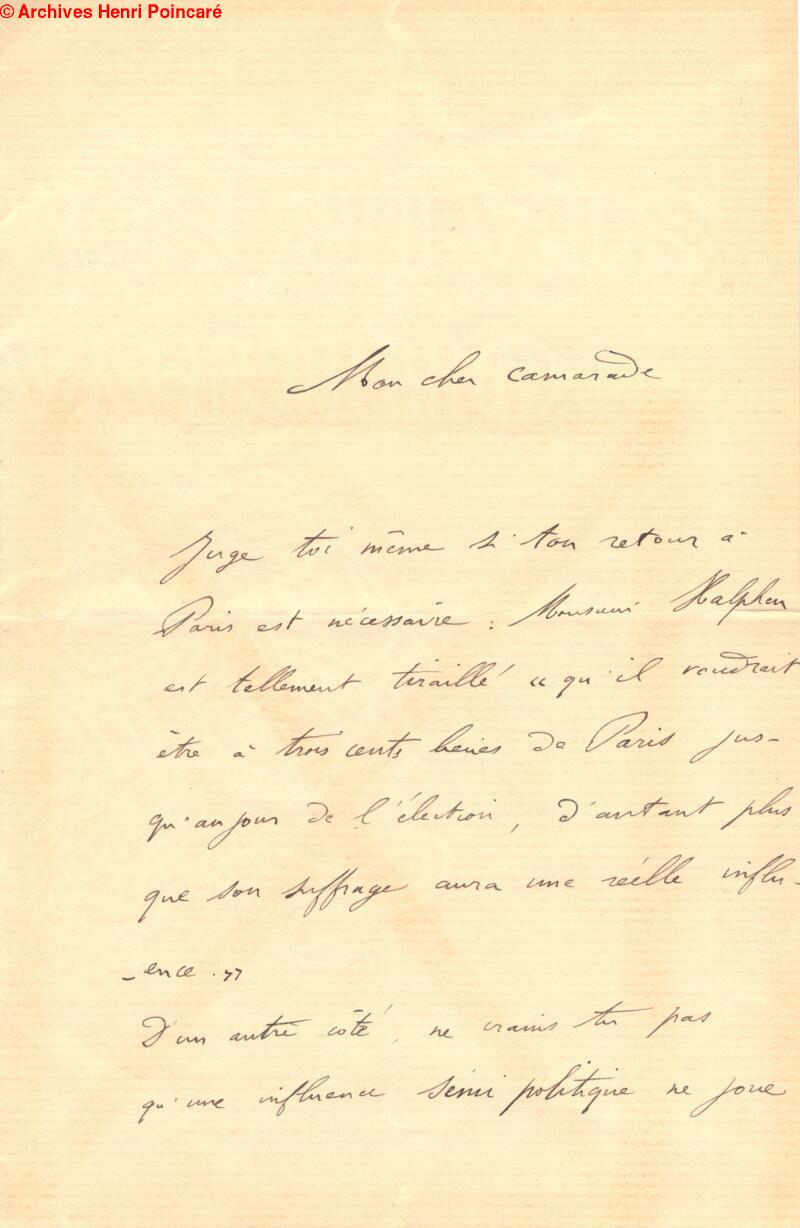 © Archives Henri Poincaré
Mon cher camarade
Juge toi même si ton retour à
Paris est nécessaire : Monsieur Halphen
est tellement tiraillé « qu'il voudrait
être à trois cents lieues de Paris jus-
qu'au jour de l'élection, d'autant plus
que son suffrage aura une réelle influ-
-ence. »
D'un autre côté, ne crains tu pas
qu'une influence sémi politique ne joue